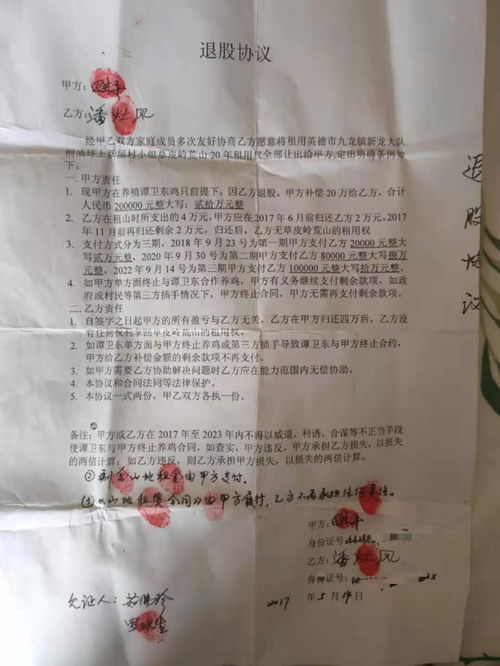 退股协议
甲方：
乙方：潘灶风
经甲乙双方家庭成员多次友好协商乙方愿意将租用英德市九龙镇新龙大队
坪上新屋村小组草皮岭荒山 20 年租用权全部让出给甲方,定出明确条例如
下。
一.甲方责任
1. 现甲方在养殖谭卫东鸡只前提下，因乙方退股，甲方补偿 20 万给乙方，合计
人民币 200000 元整大写：贰拾万元整
2. 乙方在租山时所支出的 4 万元，甲方应在 2017 年 6 月前归还乙方 2 万元，2017
年 11 月前再归还剩余 2 万元，归还后，乙方无草皮岭荒山的租用权
3. 支付方式分为三期，2018 年 9 月 23 号为第一期甲方支付乙方 20000 元整大
写贰万元整，2020 年 9 月 30 号为第二期甲方支付乙方 80000 元整大写捌万
元整，2022 年 9 月 14 号为第三期甲方支付乙方 100000 元整大写拾万元整。
4. 如甲方单方面终止与谭卫东合作养鸡，甲方有义务继续支付剩余款项，如政
府或村民等第三方插手情况下，甲方终止合同，甲方无需再支付剩余款项。
二.乙方责任
1. 自签字之日起甲方的所有盈亏与乙方无关，乙方在甲方归还四万后，乙方没
有任何权利享回草皮岭荒山的租用权。
2. 如谭卫东单方面与甲方终止养鸡或第三方插手导致谭卫东与甲方终止合约，
甲方给乙方补偿金额的剩余款项不再支付。
3. 如甲方需要乙方协助解决问题时乙方应在能力范围内无偿协助。
4. 本协议和合同法同等法律保护。
5. 本协议一式两份，甲乙双方各执一份。
备注：甲方或乙方在 2017 年至 2023 年内不得以威逼，利诱，合谋等不正当手段
使谭卫东与甲方终止养鸡合同，如查实，甲方违反，甲方承担乙方损失，以损失
的两倍计算：如乙方违反，则乙方承担甲方损失，以损失的两倍计算。
②剩余山地租金由甲方支付。
③《山地租赁合同》由甲方履行,乙方不再承担任何责任。
甲方：
身份证号
乙方：潘灶风
身份证号
2017 年 5 月 14 日
允证人：
退股协议